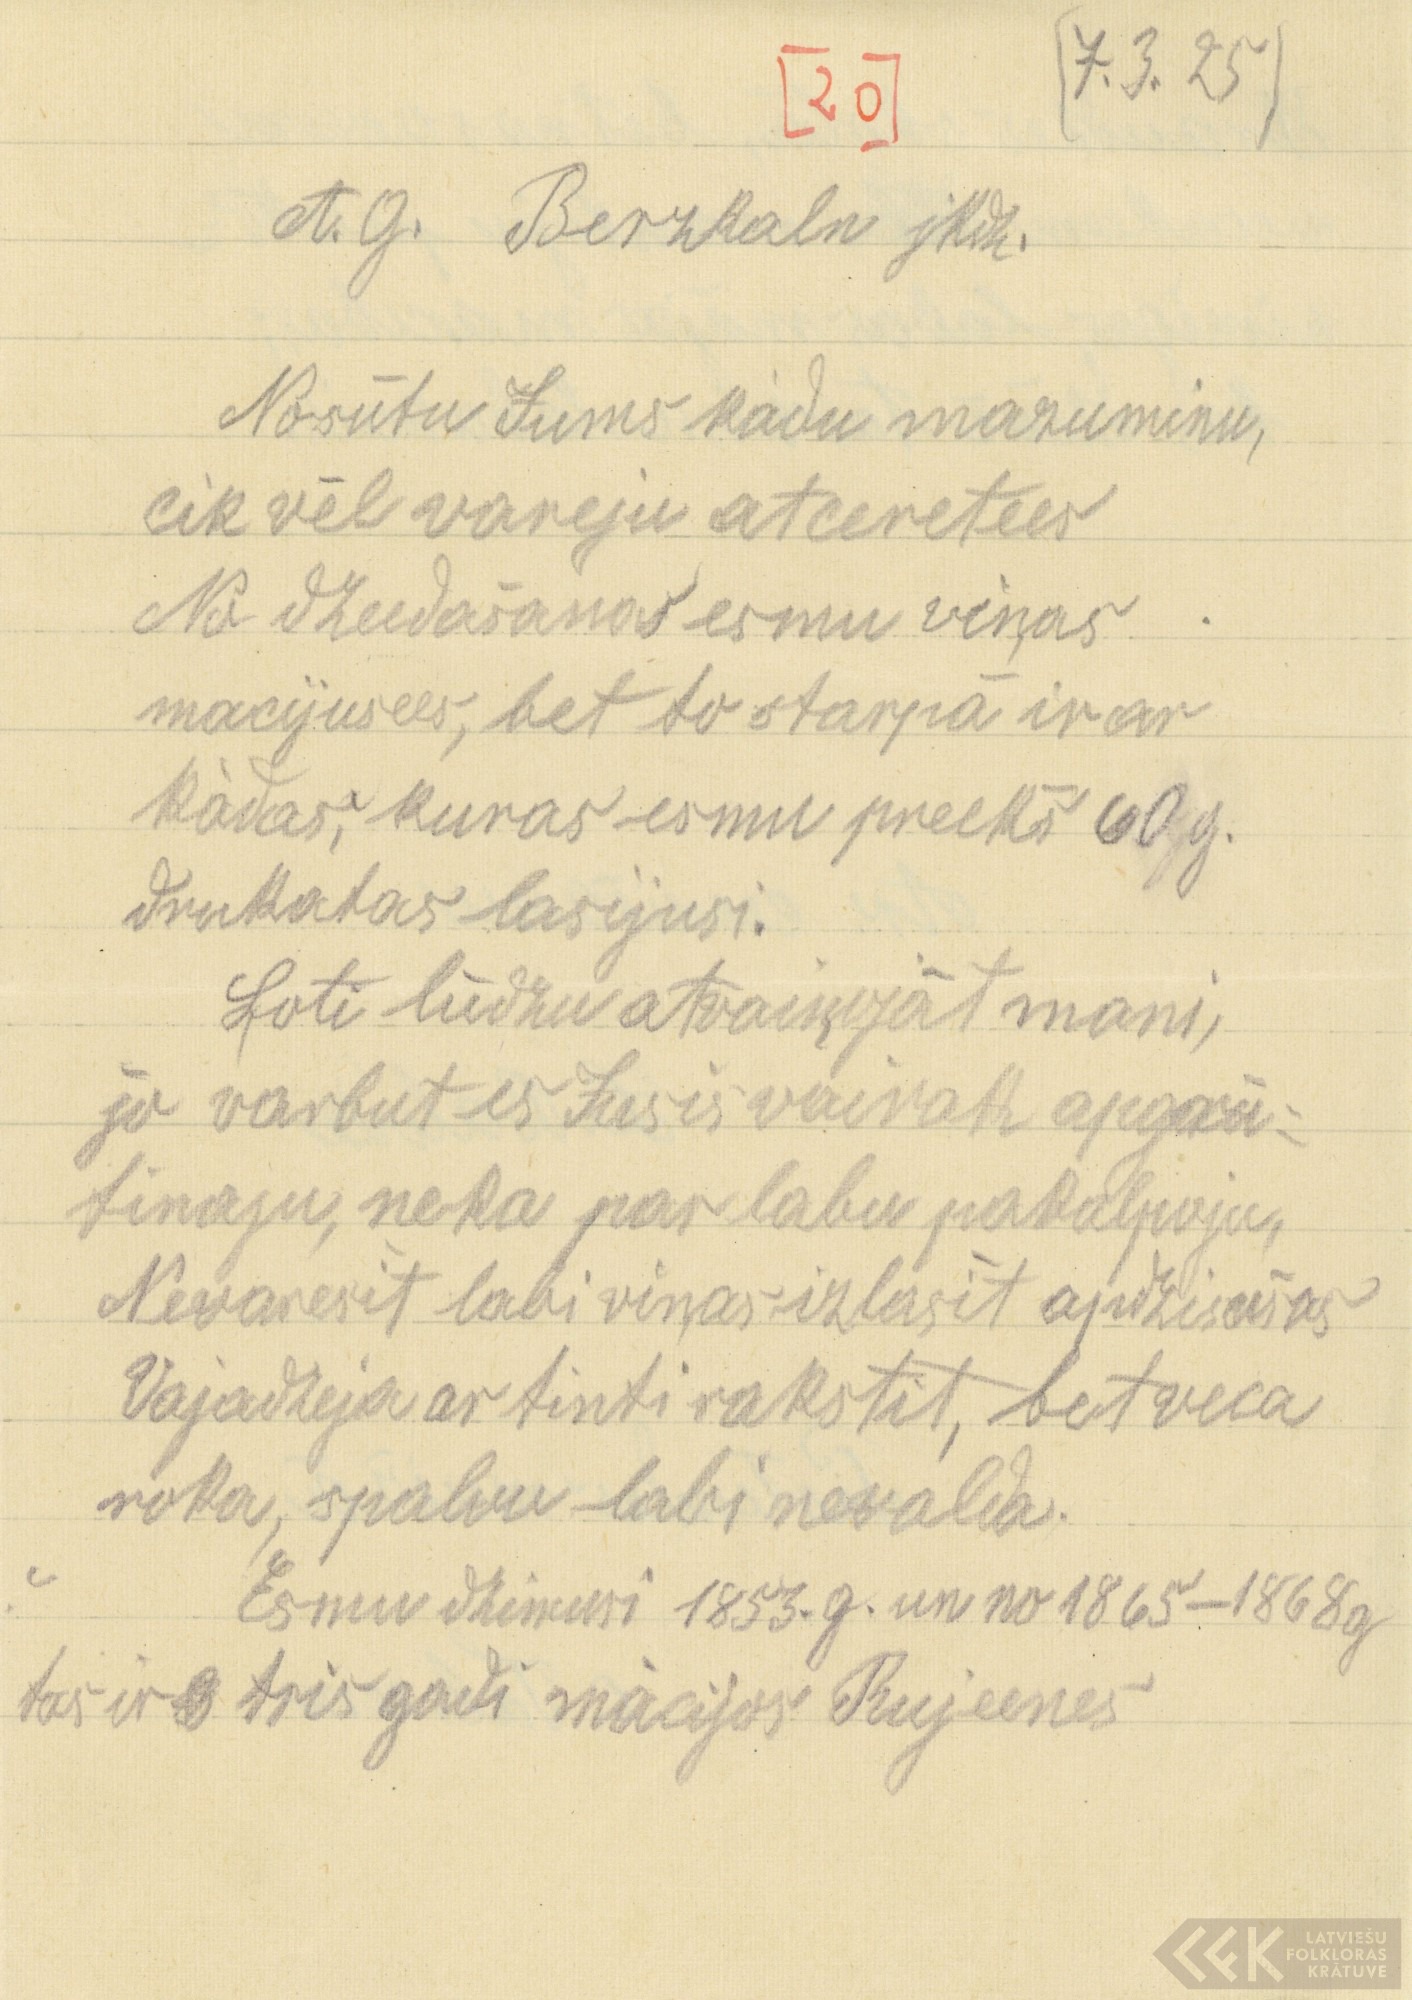 [20]
(7.3.25)
A. G. Berzkaln jkdz.
Nosūtu Jums kādu mazuminu,
cik vēl vareju atceretees
No dzeedašanas esmu viņas
macijusees, bet to starpā ir ar
kādas, kuras esmu preekš 60 g.
drukatas lasijusi.
Ļoti lūdzu atvaiņojāt mani,
jo varbut es Jusis vairak apgrū-
tinaju, neka par labu pakalpoju,
Nevaresit labi viņas izlasīt apdzisušas
Vajadzeja ar tinti rakstīt, bet veca
roka, spalvu labi nevalda.
Esmu dzimusi 1853. g. un no 1865–1868g
tas ir 3 tris gadi mācijos Rujeenes
LATVIEŠU
FOLKLORAS
KRĀTUVE